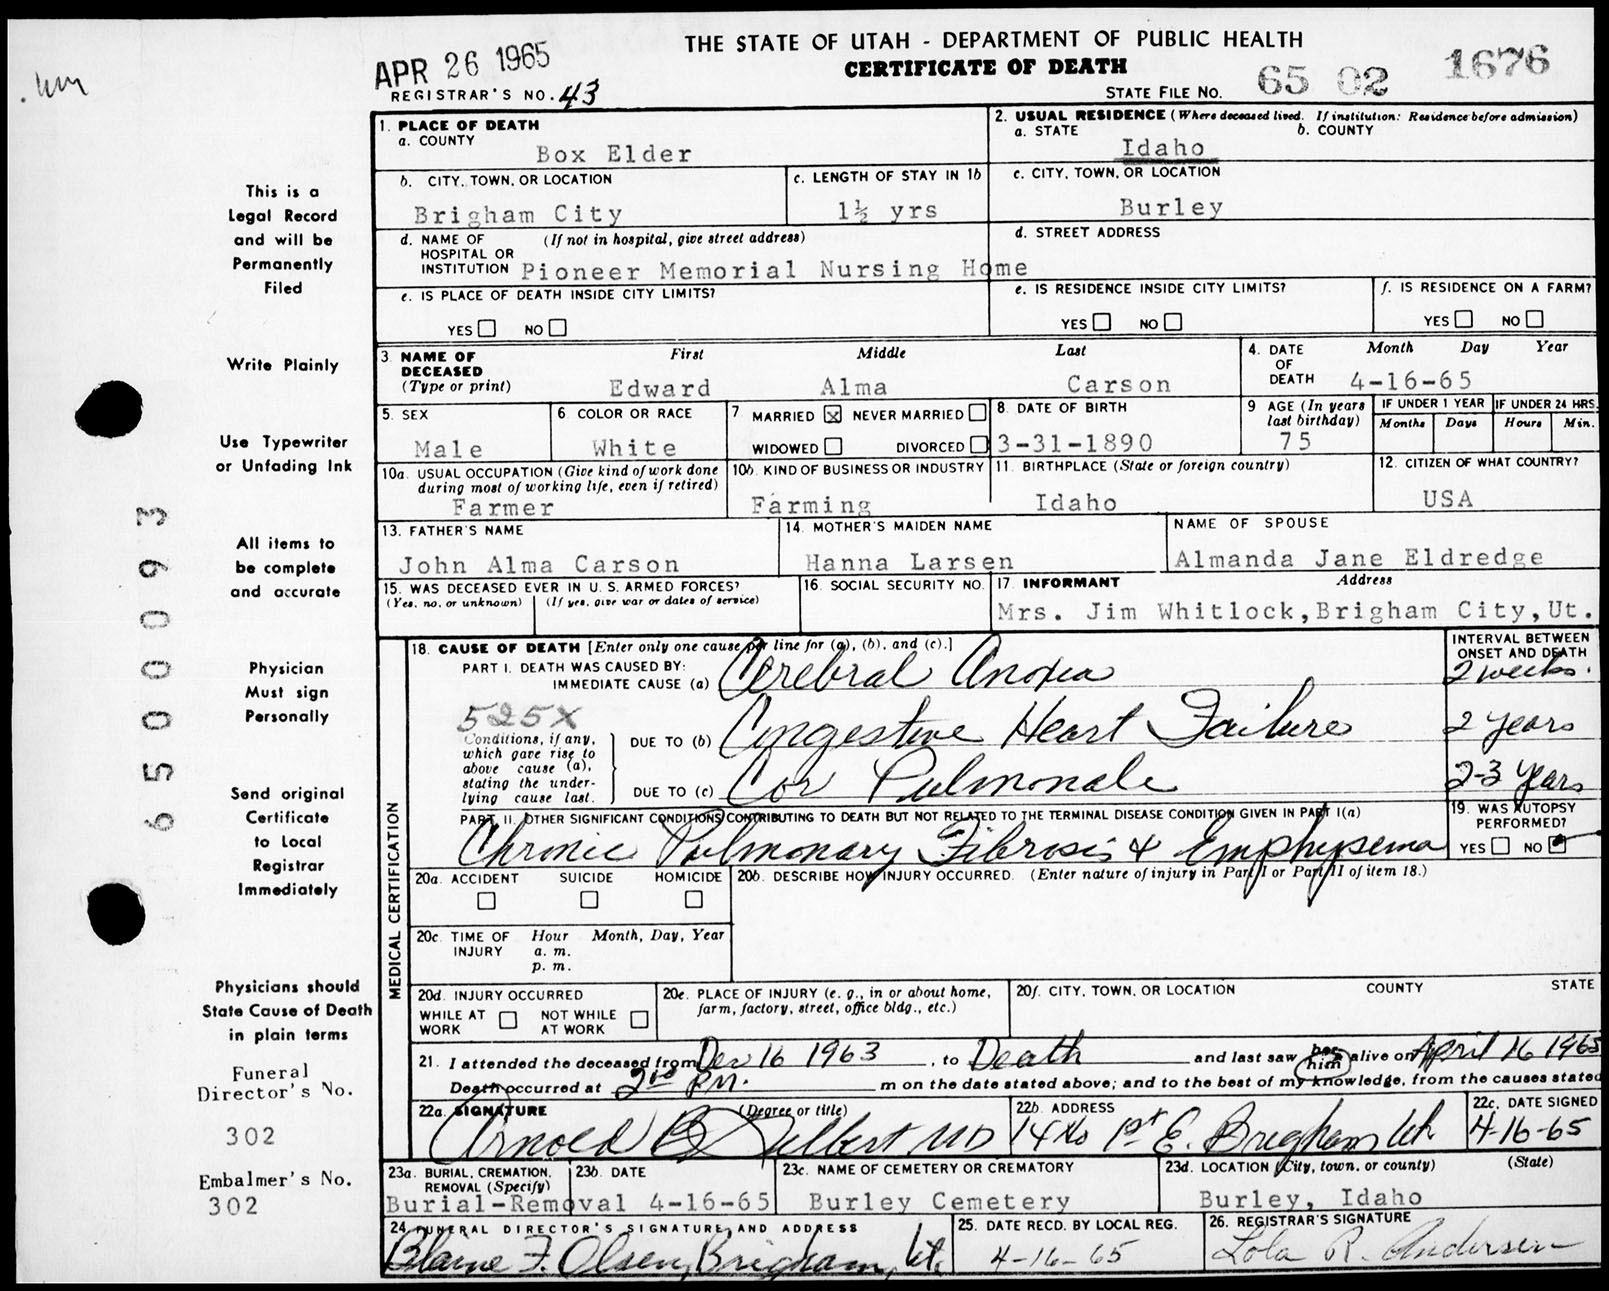 THE STATE OF UTAH - DEPARTMENT OF PUBLIC HEALTH
CERTIFICATE OF DEATH
APR 26 1965
REGISTRAR'S NO. 43
STATE FILE NO. 65 02 1676
This is a
Legal Record
and will be
Permanently
Filed
Write Plainly
Use Typewriter
or Unfading Ink
All items to
be complete
and accurate
Physician
Must sign
Personally
Send original
Certificate
to Local
Registrar
Immediately
Physicians should
State Cause of Death
in plain terms
Funeral
Director's No.
302
Embalmer's No.
302
6500093
1. PLACE OF DEATH
a. COUNTY
Box Elder
2. USUAL RESIDENCE (Where deceased lived. If institution: Residence before admission)
a. STATE b. COUNTY
Idaho
b. CITY, TOWN, OR LOCATION
Brigham City
c. LENGTH OF STAY IN 1b
1½ yrs
c. CITY, TOWN, OR LOCATION
Burley
d. NAME OF (If not in hospital, give street address)
HOSPITAL OR
INSTITUTION Pioneer Memorial Nursing Home
d. STREET ADDRESS
e. IS PLACE OF DEATH INSIDE CITY LIMITS?
YES NO
e. IS RESIDENCE INSIDE CITY LIMITS?
YES NO
f. IS RESIDENCE ON A FARM?
YES NO
3. NAME OF First Middle Last
DECEASED
(Type or print) Edward Alma Carson
4. DATE Month Day Year
OF
DEATH 4-16-65
5. SEX
Male
6 COLOR OR RACE
White
7 MARRIED x NEVER MARRIED
WIDOWED DIVORCED
8. DATE OF BIRTH
3-31-1890
9 AGE (In years
last birthday)
75
IF UNDER 1 YEAR
Months Days
IF UNDER 24 HRS.
Hours Min.
10a. USUAL OCCUPATION (Give kind of work done
during most of working life, even if retired)
Farmer
10b. KIND OF BUSINESS OR INDUSTRY
Farming
11. BIRTHPLACE (State or foreign country)
Idaho
12. CITIZEN OF WHAT COUNTRY?
USA
13. FATHER'S NAME
John Alma Carson
14. MOTHER'S MAIDEN NAME
Hanna Larsen
NAME OF SPOUSE
Almanda Jane Eldredge
15. WAS DECEASED EVER IN U. S. ARMED FORCES?
(Yes, no, or unknown) (If yes, give war or dates of service)
16. SOCIAL SECURITY NO.
17. INFORMANT Address
Mrs. Jim Whitlock, Brigham City, Ut.
MEDICAL CERTIFICATION
18. CAUSE OF DEATH [Enter only one cause per line for (a), (b), and (c).]
INTERVAL BETWEEN
ONSET AND DEATH
PART I. DEATH WAS CAUSED BY:
IMMEDIATE CAUSE (a) Cerebral Anoxia 2 weeks.
525X
Conditions, if any,
which gave rise to
above cause (a),
stating the under-
lying cause last.
DUE TO (b) Congestive Heart Failure 2 years
DUE TO (c) Cor Pulmonale 2-3 years
PART II. OTHER SIGNIFICANT CONDITIONS CONTRIBUTING TO DEATH BUT NOT RELATED TO THE TERMINAL DISEASE CONDITION GIVEN IN PART I(a)
Chronic Pulmonary Fibrosis & Emphysema
19. WAS AUTOPSY
PERFORMED?
YES NO
20a. ACCIDENT SUICIDE HOMICIDE
20b. DESCRIBE HOW INJURY OCCURRED. (Enter nature of injury in Part I or Part II of item 18.)
20c. TIME OF Hour Month, Day, Year
INJURY a. m.
p. m.
20d. INJURY OCCURRED
WHILE AT NOT WHILE
WORK AT WORK
20e. PLACE OF INJURY (e. g., in or about home,
farm, factory, street, office bldg., etc.)
20f. CITY, TOWN, OR LOCATION COUNTY STATE
21. I attended the deceased from Dec 16 1963, to Death and last saw her him alive on April 16 1965
Death occurred at 2:00 P.M. m on the date stated above; and to the best of my knowledge, from the causes stated
22a. SIGNATURE (Degree or title)
Arnold B Gilbert MD
22b. ADDRESS
1st E. Brigham Ut.
22c. DATE SIGNED
4-16-65
23a. BURIAL, CREMATION,
REMOVAL (Specify)
Burial-Removal
23b. DATE
4-16-65
23c. NAME OF CEMETERY OR CREMATORY
Burley Cemetery
23d. LOCATION (City, town, or county) (State)
Burley, Idaho
24. FUNERAL DIRECTOR'S SIGNATURE AND ADDRESS
Blaine F. Olsen, Brigham, Ut.
25. DATE RECD. BY LOCAL REG.
4-16-65
26. REGISTRAR'S SIGNATURE
Lola R. Andersen